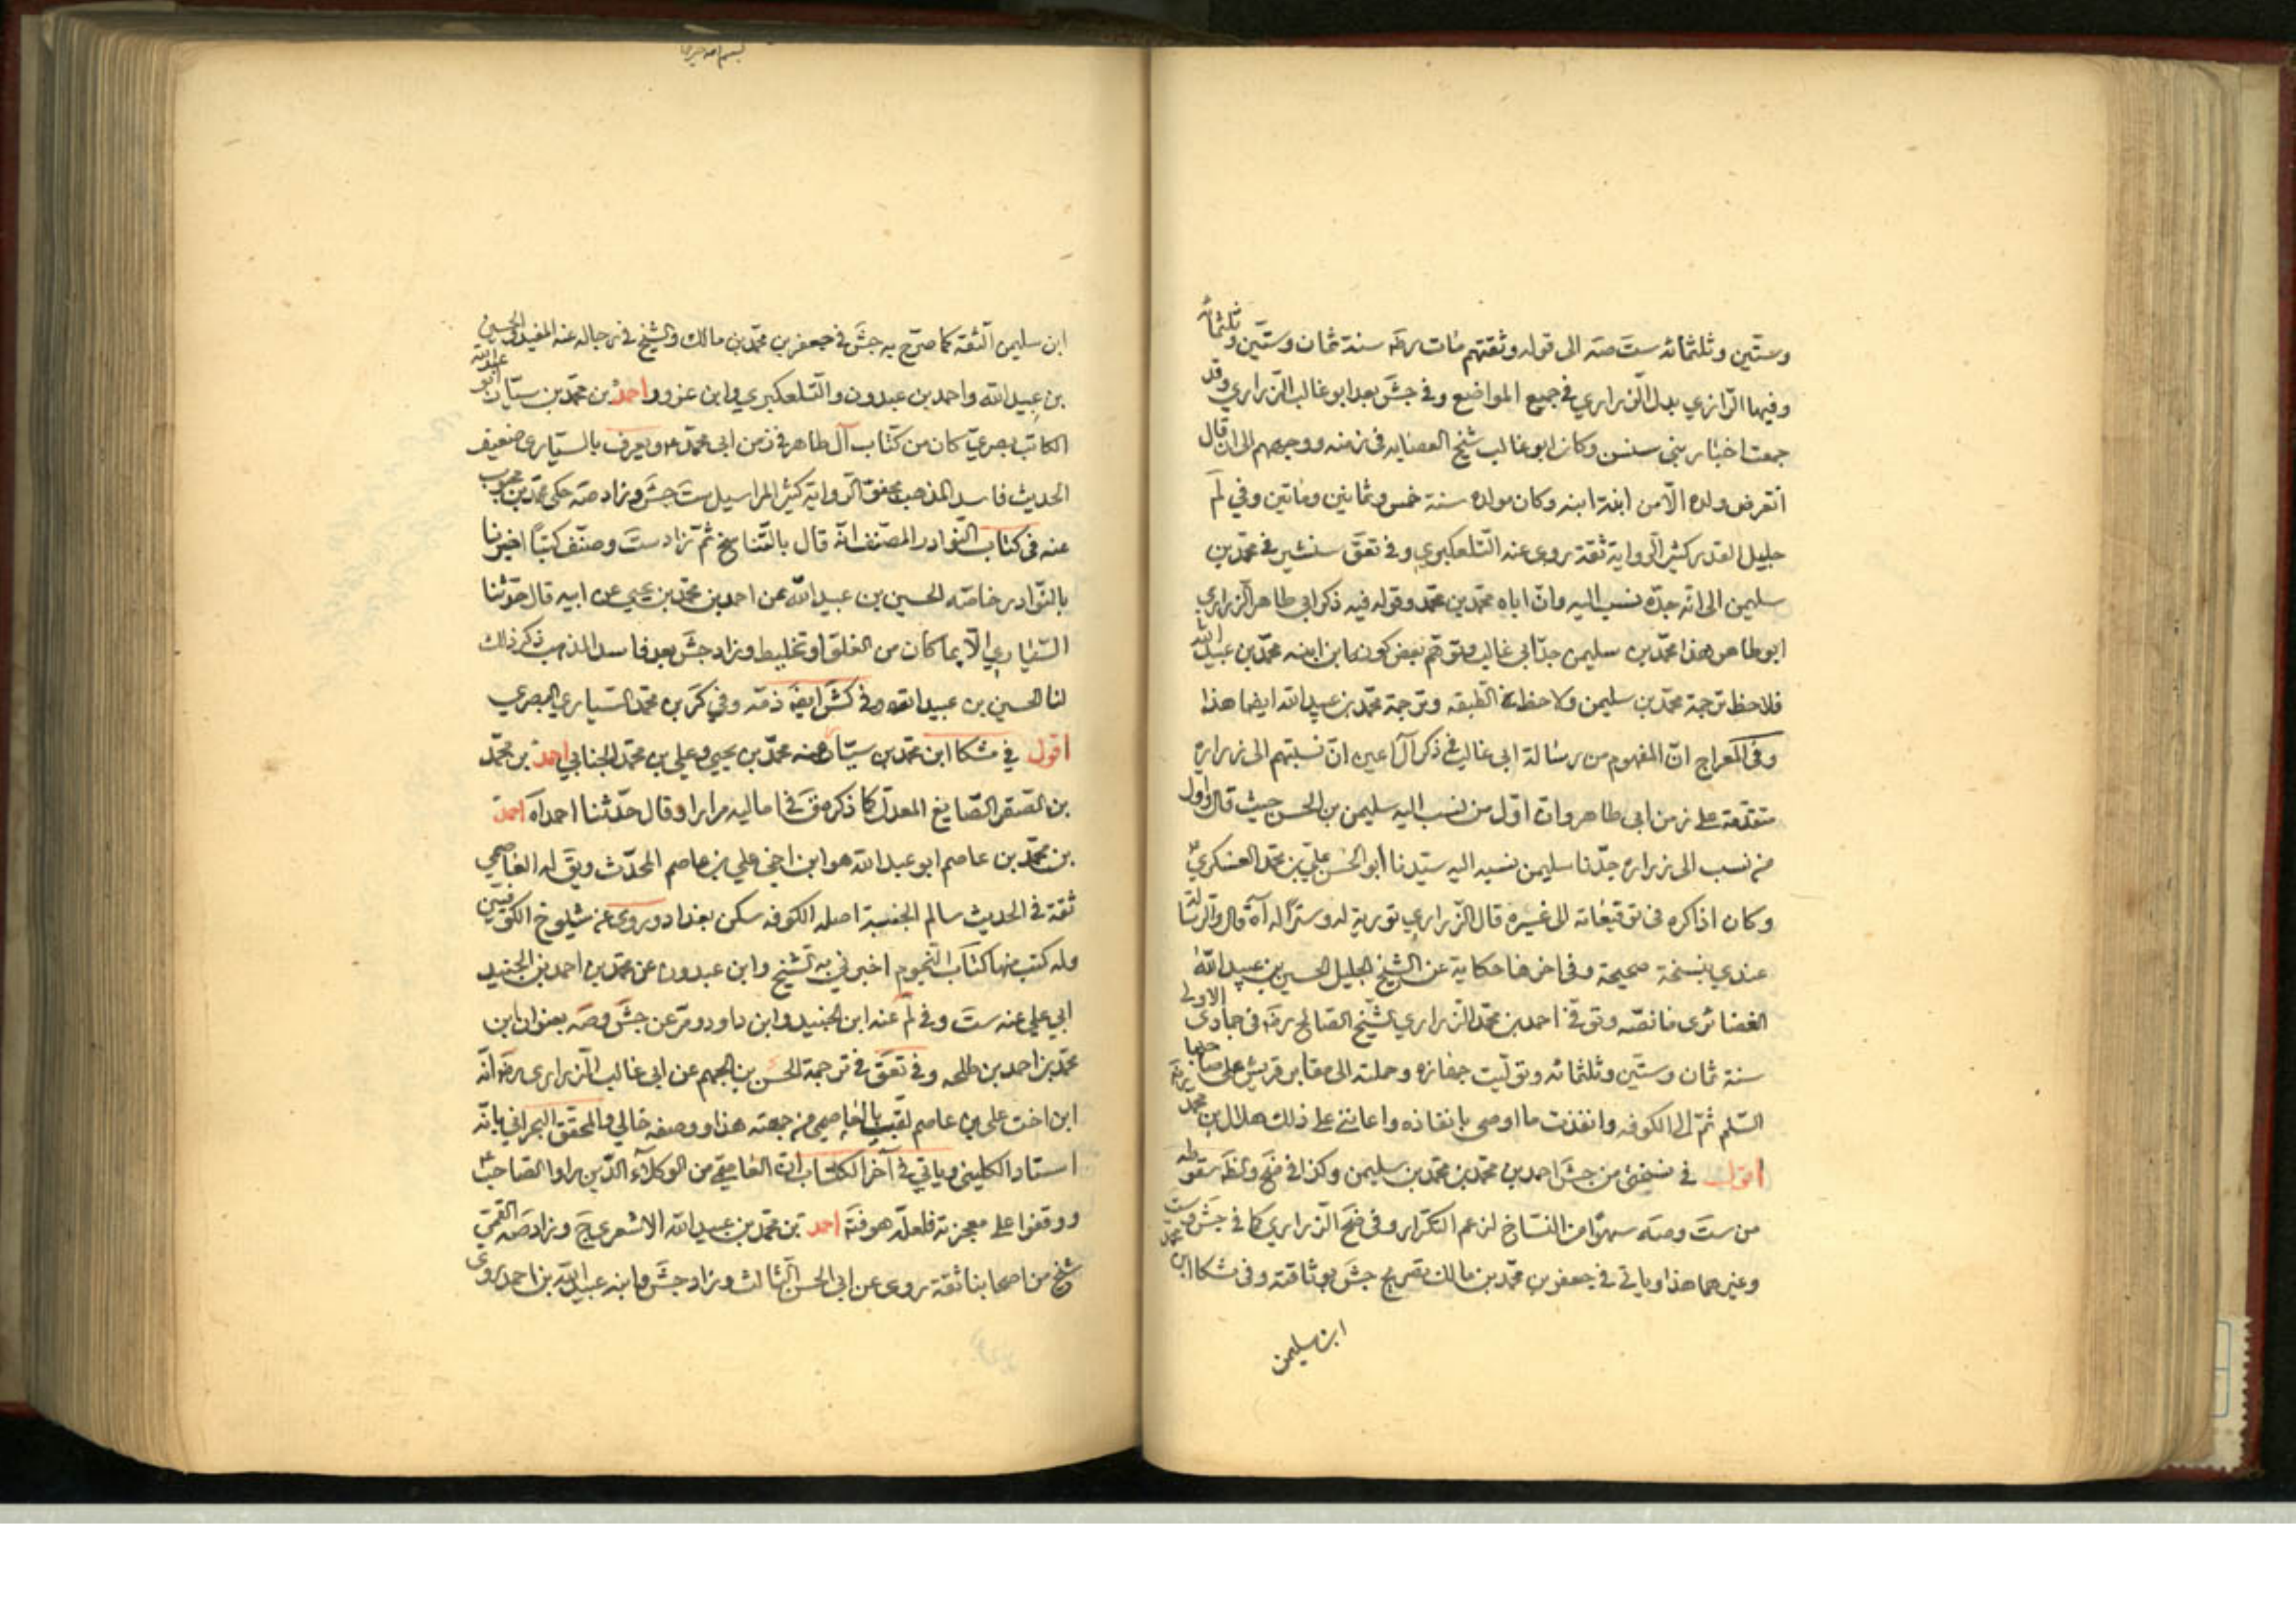 وستين وثلثمائه ست صه الى قوله وثقتهم مات رحمه سنة ثمان وستين وثلثمائه
وفيها الرازي بدل الزراري في جميع المواضع وفي جش بعد ابو غالب الزراري وقد
جمعت اخبار بني سنسن وكان ابو غالب شيخ العصابه في زمنه ووجههم الى ان قال
انقرض ولده الا من ابنة ابنه وكان مولده سنة خمس وثمانين ومائتين وفي لم
جليل القدر كثير الرواية ثقة روى عنه التلعكبري وفي تعق سنشير في محمد بن
سليمن الى انه جده نسب اليه وان اباه محمد بن محمد وقوله فيه ذكر ابي طاهر الزراري
ابو طاهر هذا محمد بن سليمن جد ابي غالب وتوهم بعض كونه ابن ابنه محمد بن عبيد الله
فلاحظ ترجمة محمد بن سليمن ولاحظ الطبقه وترجمة محمد بن عبيد الله ايضا هذا
وفي المعراج ان المفهوم من رسالة ابي غالب في ذكر آل اعين ان نسبتهم الى زرارة
متقدمة على زمن ابي طاهر وان اول من نسب اليه سليمن بن الحسن حيث قال واول
من نسب الى زرارة جدنا سليمن نسبه اليه سيدنا ابو الحسن علي بن محمد العسكري ع
وكان اذا ذكره في توقيعاته الى غيره قال الزراري تورية له وسترا له آه قال والرسالة
عندي بنسخة صحيحة وفي اخرها حكاية عن الشيخ الجليل الحسين بن عبيد الله
الغضائرى ما نصه وتوفي احمد بن محمد الزراري الشيخ الصالح رحمه في جمادى الاولى
سنة ثمان وستين وثلثمائه وتوليت جهازه وحملته الى مقابر قريش على صاحبها
السلم ثم الى الكوفه وانفذت ما اوصى بانفاذه واعانني على ذلك هلال بن محمد
اقول في نسختي من جش احمد بن محمد بن محمد بن سليمن وكذا في ضح ولظه سقوطه
من ست وصه سهوا من النساخ لزعم التكرار وفي ضح الزراري كما في جش وست
وغيرهما هذا وياتي في جعفر بن محمد بن مالك تصريح جش بوثاقته وفي مشكا ابن محمد
ابن سليمن
ابن سليمن الثقة كما صرح به جش في جعفر بن محمد بن مالك والشيخ في رجاله عنه المفيد والحسين
بن عبيد الله واحمد بن عبدون والتلعكبري وابن عزور احمد بن محمد بن سيار ابو عبد الله
الكاتب بصري كان من كتاب آل طاهر في زمن ابي محمد ع ويعرف بالسياري ضعيف
الحديث فاسد المذهب مجفو الرواية كثير المراسيل ست جش وزاد صه حكى محمد بن محبوب
عنه في كتاب النوادر المصنف انه قال بالتناسخ ثم زاد ست وصنف كتبا اخبرنا
بالنوادر خاصة الحسين بن عبيد الله عن احمد بن محمد بن يحيى عن ابيه قال حدثنا
السياري الا بما كان من الغلو او تخليط وزاد جش بعد فاسد المذهب ذكر ذلك
لنا الحسين بن عبيد الله وفي كش ايضا ذمه وفي كر بن محمد السياري البصري
اقول في مشكا ابن محمد بن سيار عنه محمد بن يحيى وعلي بن محمد الجنابي احمد بن محمد
بن الصقر الصايغ المعدل كذا ذكره في اماليه مرارا وقال حدثنا احمد آه احمد
بن محمد بن عاصم ابو عبد الله هو ابن اخي علي بن عاصم المحدث ويق له العاصمي
ثقة في الحديث سالم الجنبة اصله الكوفه سكن بغداد وروى عن شيوخ الكوفيين
وله كتب منها كتاب النجوم اخبرني به الشيخ وابن عبدون عن محمد بن احمد بن الجنيد
ابي علي عنه ست وفي لم عنه ابن الجنيد وابن داود ومر عن جش وصه بعنوان ابن
محمد بن احمد بن طلحه وفي تعق في ترجمة الحسن بن الجهم عن ابي غالب الزراري رضه انه
ابن اخت علي بن عاصم لقب بالعاصمي من جهته هذا ووصفه خالي والمحقق البحراني بانه
استاد الكليني وياتي في آخر الكتاب ان العاصمي من الوكلاء الذين راوا الصاحب ع
ووقفوا على معجزته فلعله هو فتة احمد بن محمد بن عبيد الله الاشعري ج وزاد صه القمي
شيخ من اصحابنا ثقة روى عن ابي الحسن الثالث وزاد جش وابنه عبيد الله بن احمد روى